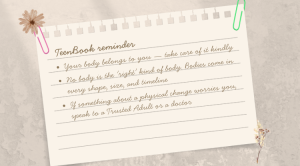 TeenBook reminder
• Your body belongs to you — take care of it kindly.
• No body is the 'right' kind of body. Bodies come in
every shape, size, and timeline.
• If something about a physical change worries you,
speak to a Trusted Adult or a doctor.